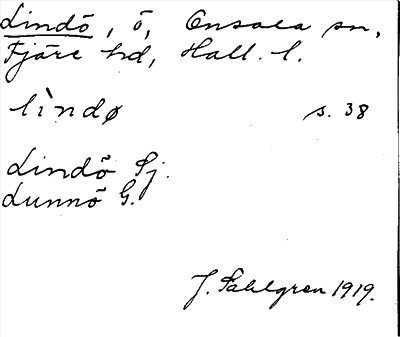 Lindö, ö, Onsala sn,
Fjäre hd, Hall. l.
lìndø s. 38
Lindö Sj.
Lunnö G.
J. Sahlgren 1919.